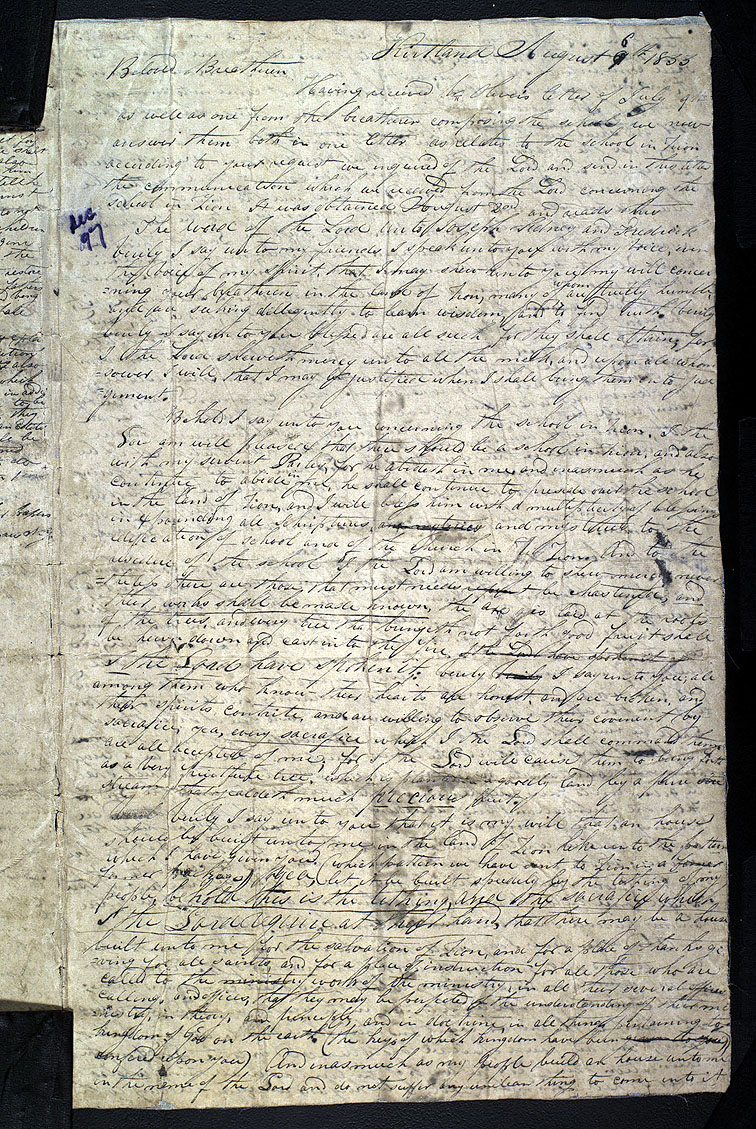 Kirtland August 6th 1833
Beloved Breatheren
Having received Br Olivers letter of July 9th
as well as one from the breatheren composing the school we now
answer them both in one letter as relates to the school in Zion
according to your request we inquired of the Lord and send in this letter
the communication which we received from the Lord concerning the
school in Zion It was obtained August 2nd and reads thus
The word of the Lord unto Joseph Sidney and Frederick
verily I say unto my friends, I speak unto you with my voice, even
the voice of my spirit, that I may shew unto you my will concer
=ning your breatheren in the land of Zion, many of whom are truly humble
and are seeking dilegently to learn wisdom, and to find truth, verily
verily I say unto you blessed are all such for they shall obtain, for
I the Lord sheweth mercy unto all the meek, and upon all whom
soever I will, that I may be justified when I shall bring them unto jud
=gment.
Behold I say unto you concerning the school in Zion, I the
Lord am well pleased that there should be a school in Zion; and also
with my servent Parley, for he abideth in me, and inasmuch as he
continue to abide in me, he shall continue to preside over the school
in the land of Zion, and I will bless him with a multiplicity of blessings
in expounding all scriptures and mysteries to the
edification of the school and of the church in Zion, And to the
residue of the school I the Lord am willing to shew mercy, never
=theless there are those that must needs be chastened, and
their works shall be made known, the axe is laid at the roots
of the trees, and every tree that bringeth not forth good fruit shall
be hewn down and cast into the fire
I the Lord have spoken it; verily I say unto you, all
among them who know their hearts are honest, and are broken, and
their spirits contrite, and are willing to observe their covenent by
sacrafice, yea, every sacrafice which I the Lord shall command them
are all accepted of me, for I the Lord will cause them to bring forth
as a very fruitful tree, which is planted in a goodly land by a pure
stream that yealdeth much precious fruit
verily I say unto you that it is my will that an house
should be built unto me in the land of Zion like unto the pattern
which I have given you, which pattern we have sent to Zion in a
former package) yea let it be built speedily by the tithing of my
people, behold this is the tithing and the sacrafice which
I the Lord require at their hands, that there may be a house
built unto me for the salvation of Zion, and for a place of thanksgi
=ving for all saints, and for a place of instruction for all those who are
called to the work of the ministry, in all their several
callings, and offices, that they may be perfected in the understanding of their mi
=nistry, in theory, and principle, and in doctrine, in all things pertaining to the
kingdom of God on the earth (the keys of which kingdom have been
confered upon you) And inasmuch as my People build an house unto me
in the name of the Lord and do not suffer any unclean thing to come into it
Dec
97